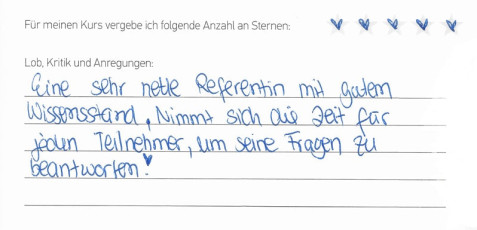 Für meinen Kurs vergebe ich folgende Anzahl an Sternen:
Lob, Kritik und Anregungen:
Eine sehr nette Referentin mit gutem
Wissensstand, Nimmt sich die Zeit für
jeden Teilnehmer, um seine Fragen zu
beantworten!